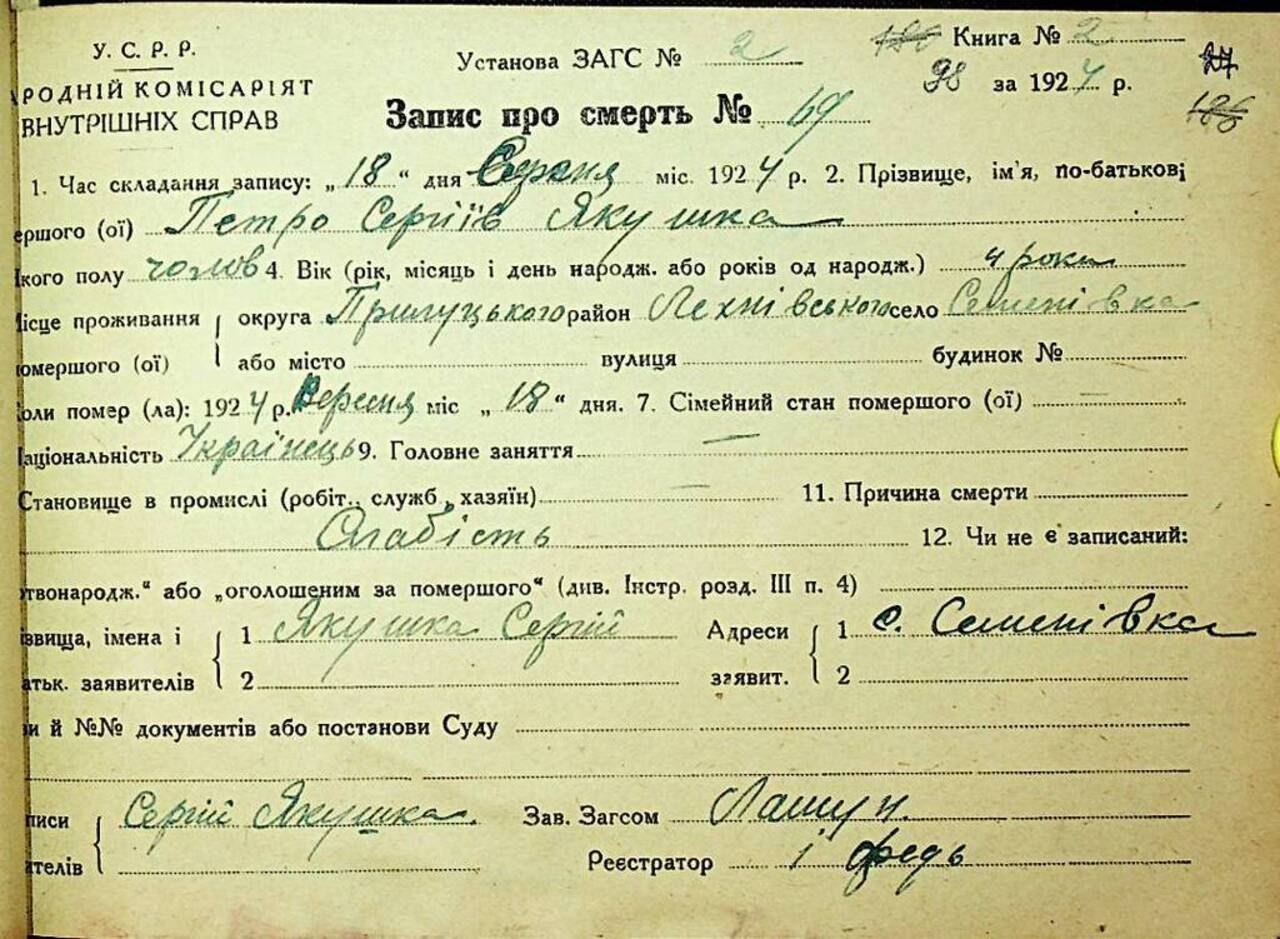 У. С. Р. Р.
РОДНІЙ КОМІСАРІЯТ
ВНУТРІШНІХ СПРАВ
Установа ЗАГС № 2
Книга № 2
98 за 1924 р.
27
186
Запис про смерть № 69
1. Час складання запису: „18“ дня Серпня міс. 1924 р. 2. Прізвище, ім'я, по-батькові
ершого (ої) Петро Сергіїв Якушка
кого полу чолов 4. Вік (рік, місяць і день народж. або років од народж.) 4 роки
ісце проживання округа Прилуцького район Лехнівського село Семенівка
омершого (ої) або місто вулиця будинок №
оли помер (ла): 1924 р. Вересня міс „18“ дня. 7. Сімейний стан помершого (ої) —
аціональність Українець 9. Головне заняття —
Становище в промислі (робіт., служб., хазяїн) — 11. Причина смерти
Слабість 12. Чи не є записаний:
твонародж.“ або „оголошеним за помершого“ (див. Інстр. розд. III п. 4)
ізвища, імена і 1 Якушка Сергій Адреси 1 с. Семенівка
атьк. заявителів 2 заявит. 2
и й №№ документів або постанови Суду
писи Сергій Якушка. Зав. Загсом
ителів Реєстратор